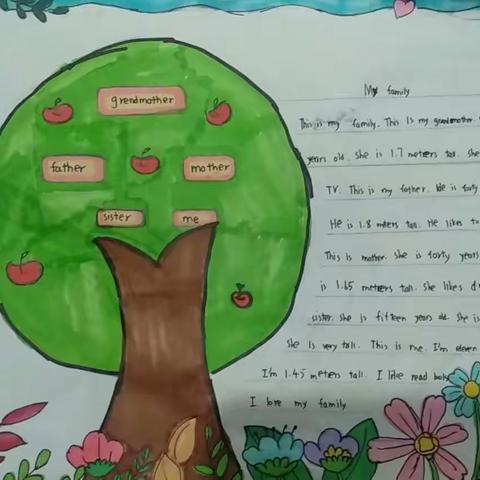 grandmother
father
mother
sister
me
My family
This is my family. This is my grandmother.
years old. She is 1.7 meters tall. She
TV. This is my father. He is forty
He is 1.8 meters tall. He likes to
This is mother. she is forty years
is 1.65 meters tall. She likes
sister. she is fifteen years old. She is
she is very tall. This is me. I'm eleven
I'm 1.45 meters tall. I like read
I love my family